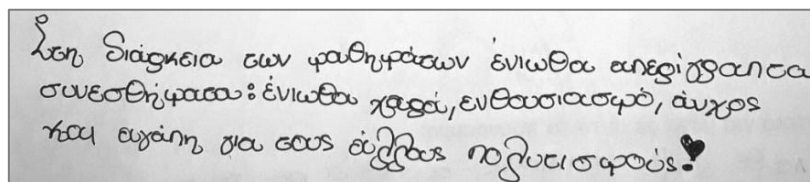 Στη διάρκεια των μαθημάτων ένιωθα απερίγραπτα
συνεσθήματα: ένιωθα χαρά, ενθουσιασμό, άνχος
και αγάπη για τους άλλους πολιτισμούς!